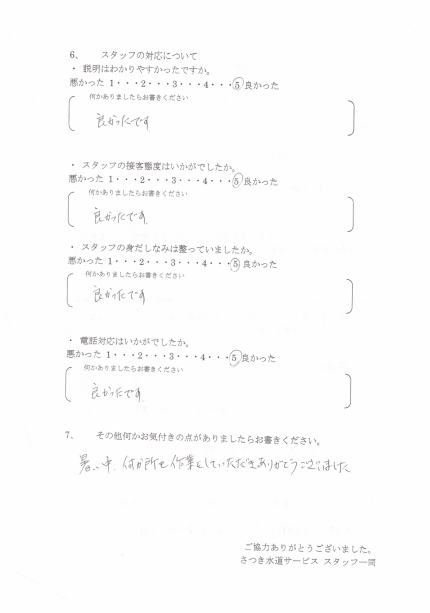 6、　スタッフの対応について
・ 説明はわかりやすかったですか。
悪かった 1・・・2・・・3・・・4・・・5 良かった
何かありましたらお書きください
良かったです
・ スタッフの接客態度はいかがでしたか。
悪かった 1・・・2・・・3・・・4・・・5 良かった
何かありましたらお書きください
良かったです。
・ スタッフの身だしなみは整っていましたか。
悪かった 1・・・2・・・3・・・4・・・5 良かった
何かありましたらお書きください
良かったです
・ 電話対応はいかがでしたか。
悪かった 1・・・2・・・3・・・4・・・5 良かった
何かありましたらお書きください
良かったです。
7、　その他何かお気付きの点がありましたらお書きください。
暑い中、何か所も作業をしていただきありがとうございました
ご協力ありがとうございました。
さつき水道サービス スタッフ一同